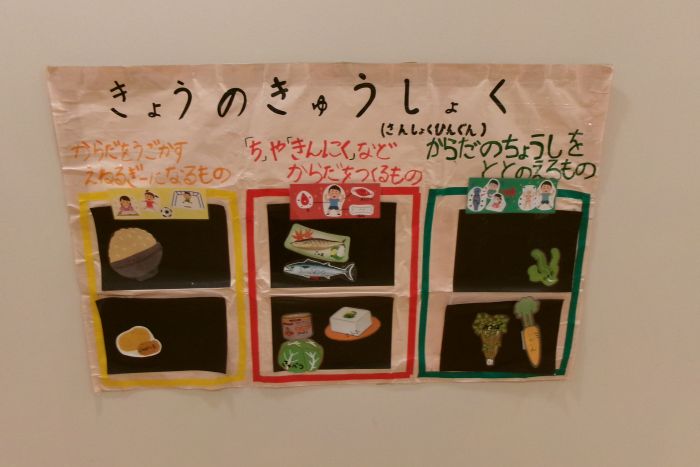 きょうのきゅうしょく
(さんしょくひんぐん)
からだをうごかす
えねるぎーになるもの
「ち」や「きんにく」など
からだをつくるもの
からだのちょうしを
ととのえるもの
きゃべつ